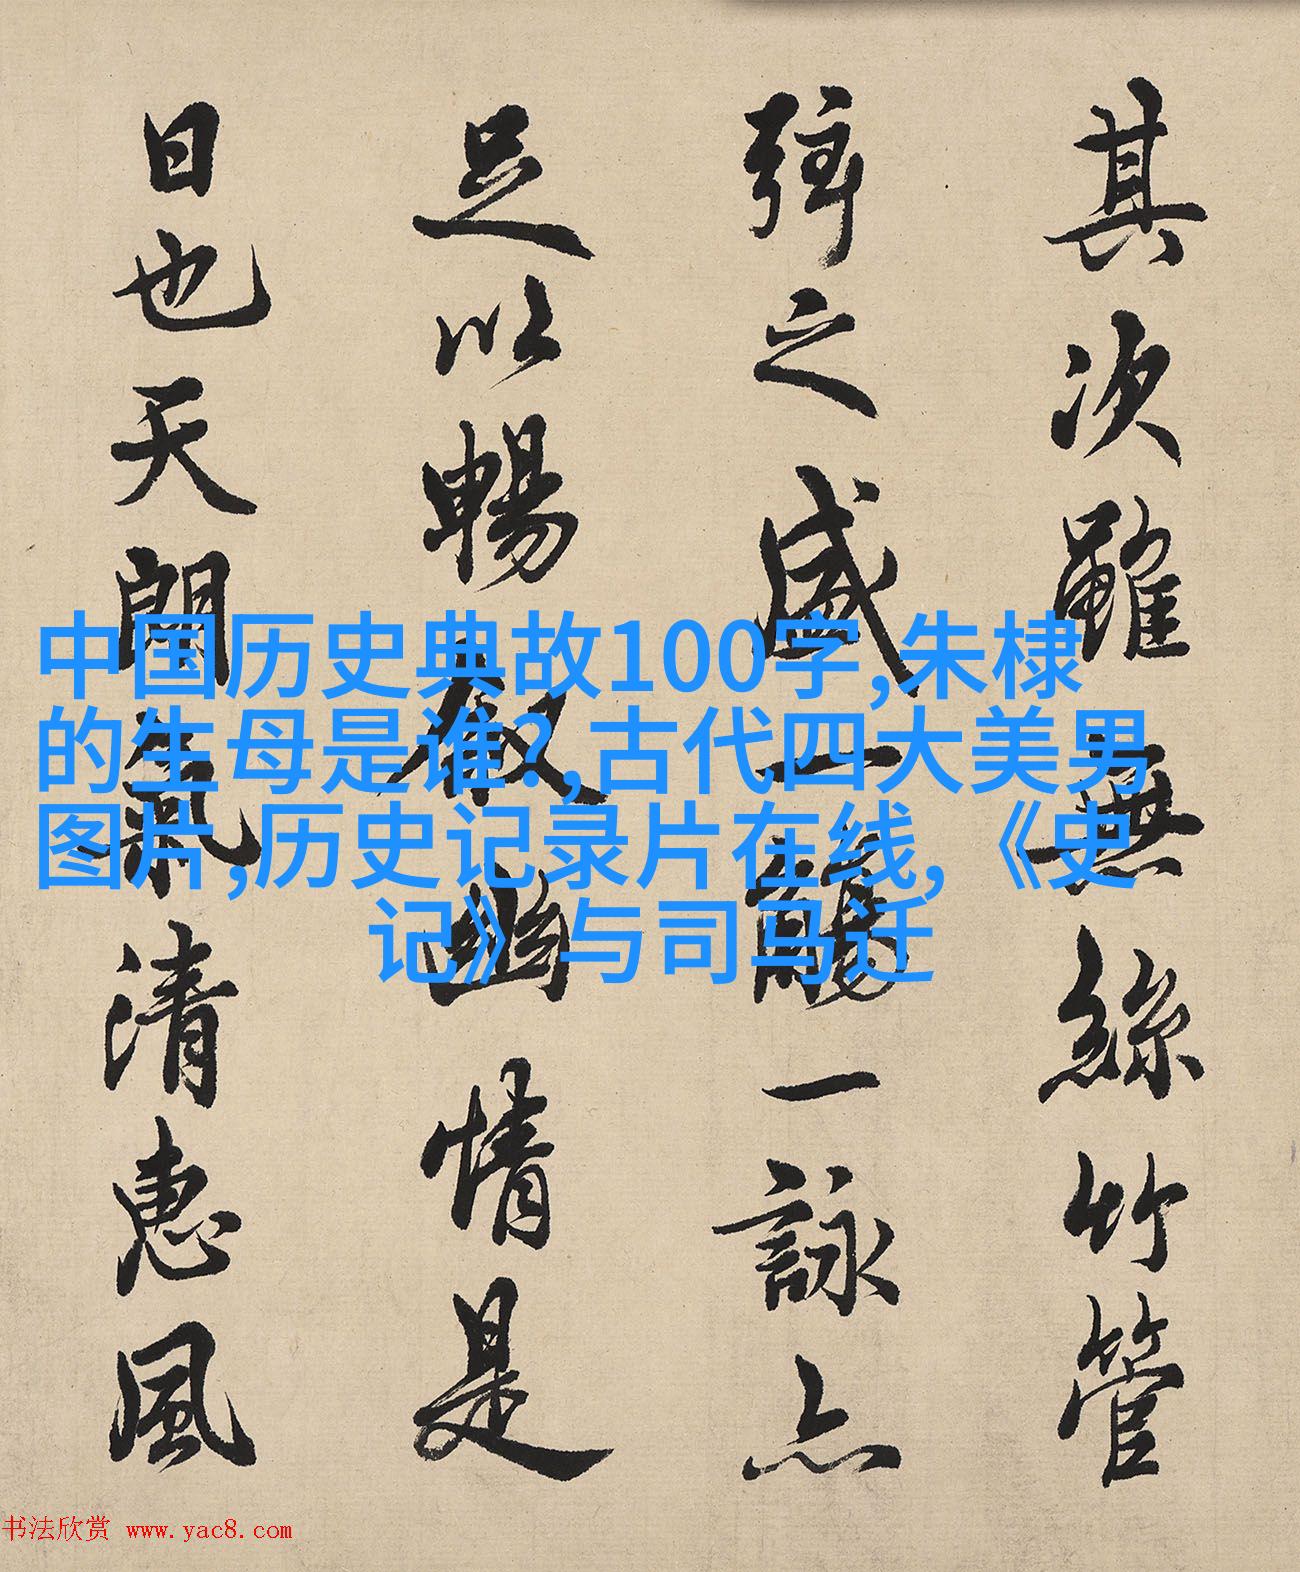 其次雖無絲竹管
弦之盛一觴一詠亦
足以暢敘幽情是
日也天朗氣清惠風
中国历史典故100字,朱棣
的生母是谁?,古代四大美男
图片,历史记录片在线,《史
记》与司马迁
书法欣赏 www.yac8.com